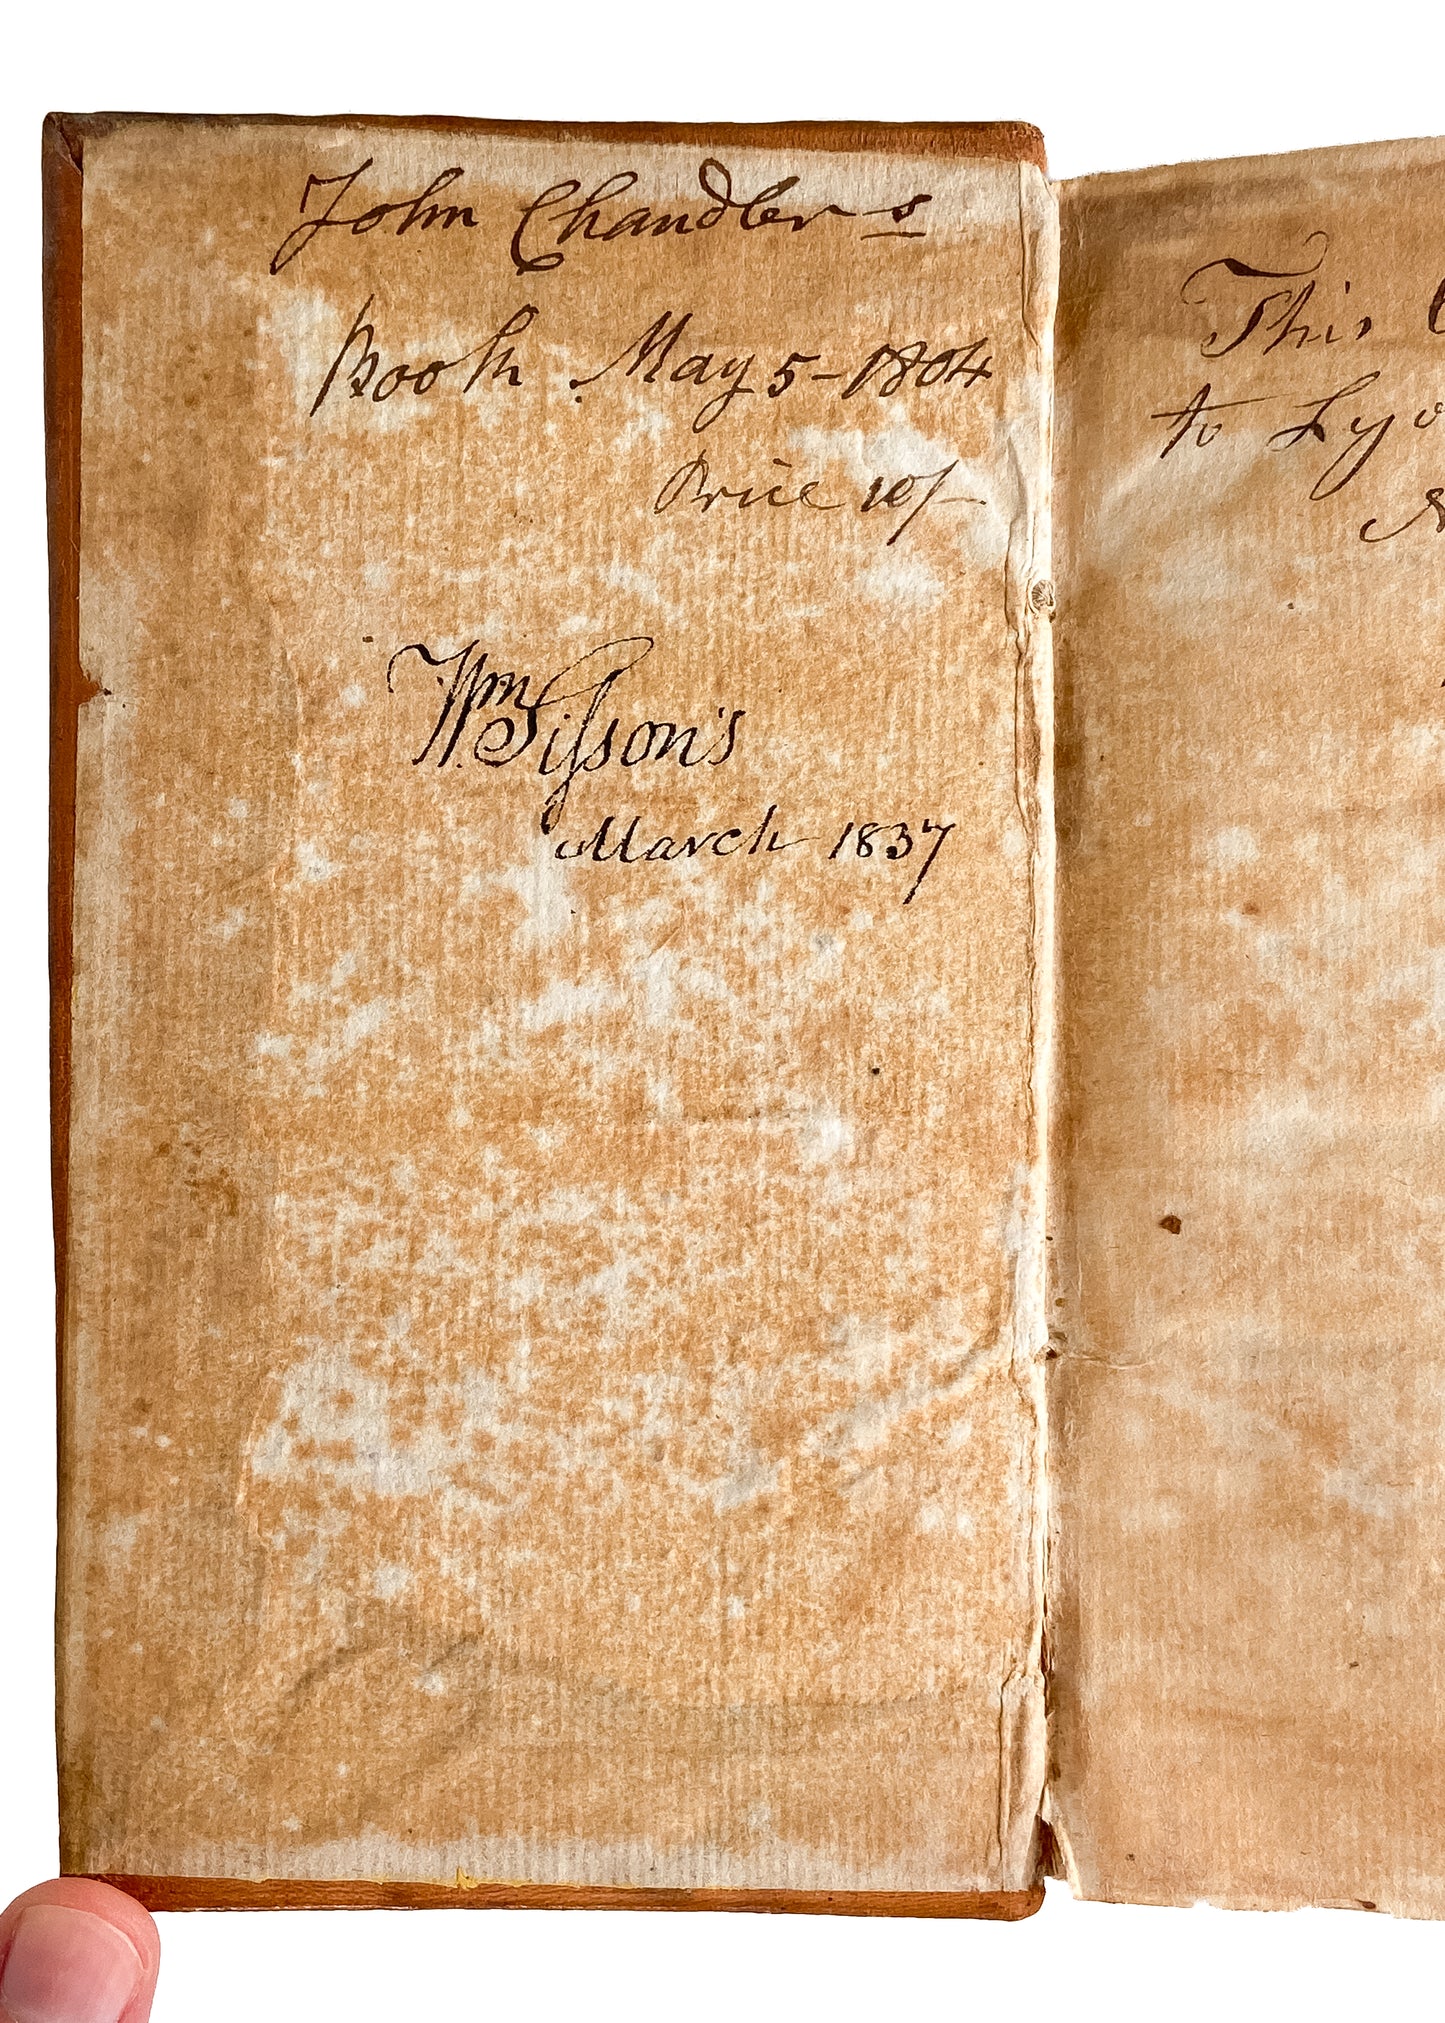 John Chandlers
Book May 5-1804
Price 10/-
Wm. Sifson's
March 1837
This
to Lyo